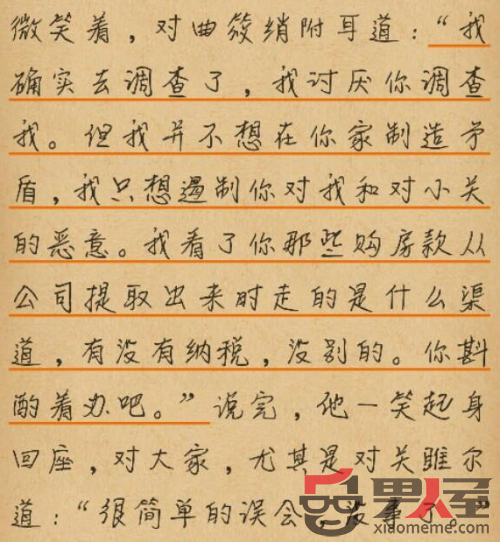 微笑着，对曲筱绡附耳道：“我
确实去调查了，我讨厌你调查
我。但我并不想在你家制造矛
盾，我只想遏制你对我和对小关
的恶意。我看了你那些购房款从
公司提取出来时走的是什么渠
道，有没有纳税，没别的。你斟
酌着办吧。”说完，他一笑起身
回座，对大家，尤其是对关雎尔
道：“很简单的误会，没事了。”
男人窝
xiaomeme.com